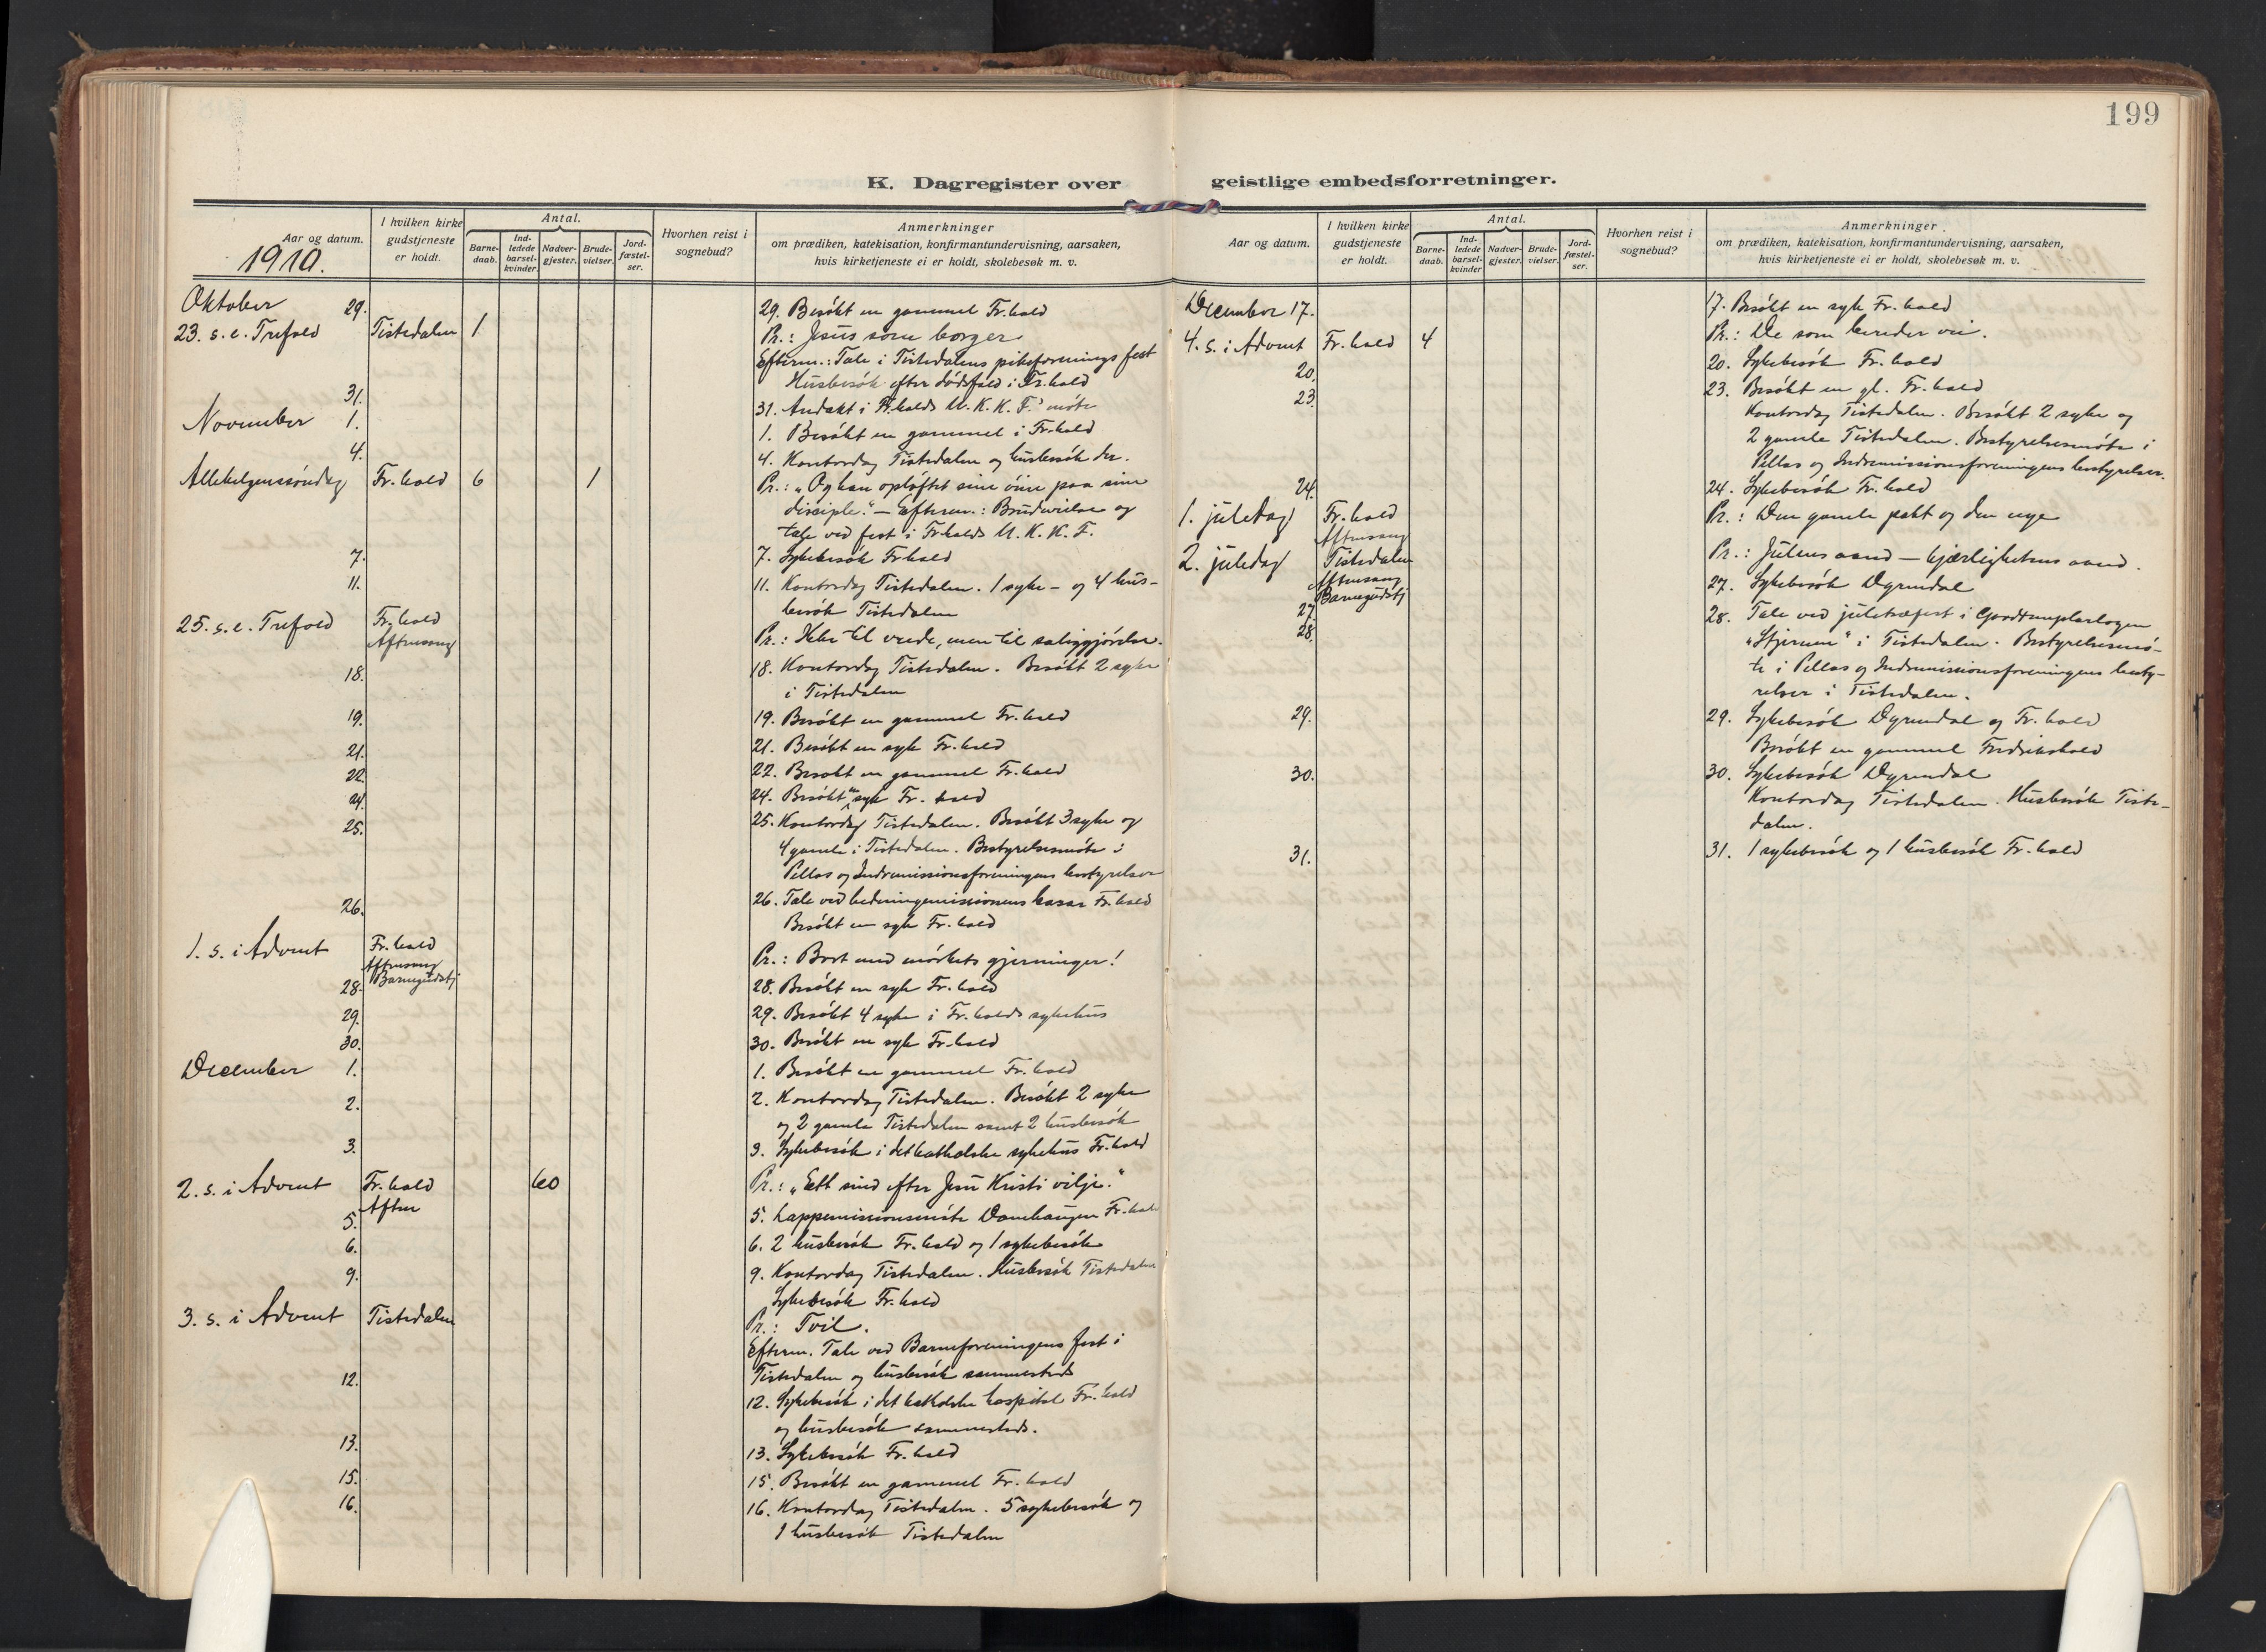 199
K. Dagregister over geistlige embedsforretninger.
Aar og datum.
1910.
I hvilken kirke gudstjeneste er holdt.
Antal.
Barne-daab.
Ind-ledede barsel-kvinder.
Nadver-gjester.
Brude-vielser.
Jord-fæstel-ser.
Hvorhen reist i sognebud?
Anmerkninger
om prædiken, katekisation, konfirmantundervisning, aarsaken,
hvis kirketjeneste ei er holdt, skolebesøk m. v.
Oktober 29. 29. Besökt en gammel Fr.hald
23. s. e. Trefold Tistedalen 1 Pr.: Jesus som borger
Efterm.: Tale i Tistedalens pikeforenings fest
Husbesök efter dödsfald i Fr.hald
31. 31. Andakt i Fr.halds U. K. K. F.' möte
November 1. 1. Besökt en gammel i Fr.hald
4. 4. Kontordag Tistedalen og husbesök der.
Allehelgenssöndag Fr.hald 6 1 Pr.: „Og han oplöftet sine öine paa sine
disciple." – Efterm.: Brudevielse og
tale ved fest i Fr.halds U. K. K. F.
7. 7. Sykebesök Fr.hald
11. 11. Kontordag Tistedalen. 1 syke- og 4 hus-
besök Tistedalen
25. s. e. Trefold Fr.hald
Aftensang
Pr.: Ikke til vrede, men til saliggjörelse.
18. 18. Kontordag Tistedalen. Besökt 2 syke
i Tistedalen
19. 19. Besökt en gammel Fr.hald
21. 21. Besökt en syk Fr.hald
22. 22. Besökt en gammel Fr.hald
24. 24. Besökt en syk Fr.hald
25. 25. Kontordag Tistedalen. Besökt 3 syke og
4 gamle i Tistedalen. Bestyrelsesmöte i
Pellas og Indremissionsforeningens bestyrelser
26. 26. Tale ved hedningemissionens basar Fr.hald
Besökt en syk Fr.hald
1. s. i Advent Fr.hald
Aftensang
Barnegudstj
Pr.: Bort med mörkets gjerninger!
28. 28. Besökt en syk Fr.hald
29. 29. Besökt 4 syke i Fr.halds sykehus
30. 30. Besökt en syk Fr.hald
December 1. 1. Besökt en gammel Fr.hald
2. 2. Kontordag Tistedalen. Besökt 2 syke
og 2 gamle Tistedalen samt 2 husbesök
3. 3. Sykebesök i det katholske sykehus Fr.hald
2. s. i Advent Fr.hald 60 Pr.: „Ett sind efter Jesu Kristi vilje."
Aften
5. 5. Lappemissionsmöte Damhaugen Fr.hald
6. 6. 2 husbesök Fr.hald og 1 sykebesök
9. 9. Kontordag Tistedalen. Husbesök Tistedalen
Sykebesök Fr.hald
3. s. i Advent Tistedalen Pr.: Tvil.
Efterm. Tale ved Barneforeningens fest i
Tistedalen og husbesök sammesteds
12. 12. Sykebesök i det katholske hospital Fr.hald
og husbesök sammesteds.
13. 13. Sykebesök Fr.hald
15. 15. Besökt en gammel Fr.hald
16. 16. Kontordag Tistedalen. 5 sykebesök og
1 husbesök Tistedalen
Aar og datum.
I hvilken kirke gudstjeneste er holdt.
Antal.
Barne-daab.
Ind-ledede barsel-kvinder
Nadver-gjester.
Brude-vielser.
Jord-fæstel-ser.
Hvorhen reist i sognebud?
Anmerkninger
om prædiken, katekisation, konfirmantundervisning, aarsaken,
hvis kirketjeneste ei er holdt, skolebesøk m. v.
December 17. 17. Besökt en syk Fr.hald
4. s. i Advent Fr.hald 4 Pr.: De som bereder vei.
20. 20. Sykebesök Fr.hald
23. 23. Besökt en gl. Fr.hald
Kontordag Tistedalen. Besökt 2 syke og
2 gamle Tistedalen. Bestyrelsesmöte i
Pellas og Indremissionsforeningens bestyrelser.
24. 24. Sykebesök Fr.hald
1. juledag Fr.hald Pr.: Den gamle pakt og den nye
Aftensang
2. juledag Tistedalen Pr.: Julens aand – kjærlighetens aand.
Aftensang
Barnegudstj
27. 27. Sykebesök Dyrendal
28. 28. Tale ved juletræfest i Goodtemplarlogen
„Stjernen" i Tistedalen. Bestyrelsesmö-
te i Pellas og Indremissionsforeningens besty-
relser i Tistedalen.
29. 29. Sykebesök Dyrendal og Fr.hald
Besökt en gammel Fredrikshald
30. 30. Sykebesök Dyrendal
Kontordag Tistedalen. Husbesök Tiste-
dalen.
31. 31. 1 sykebesök og 1 husbesök Fr.hald